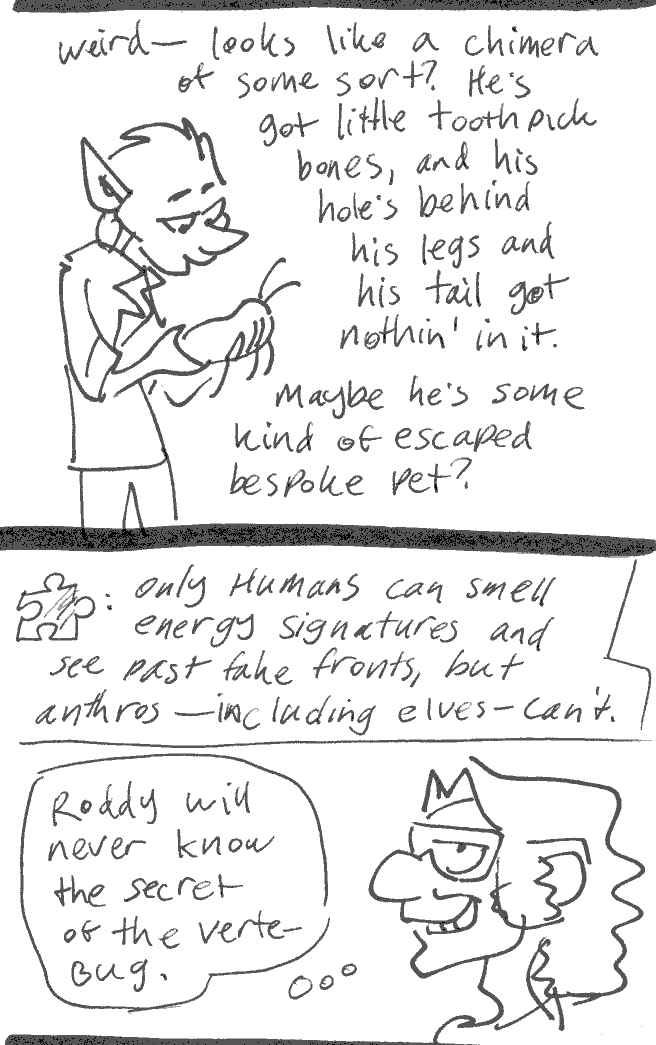 weird— looks like a chimera
of some sort? He's
got little toothpick
bones, and his
hole's behind
his legs and
his tail got
nothin' in it.
Maybe he's some
kind of escaped
bespoke pet?
: only Humans can smell
energy signatures and
see past fake fronts, but
anthros —including elves— can't.
Roddy will
never know
the secret
of the verte-
Bug.